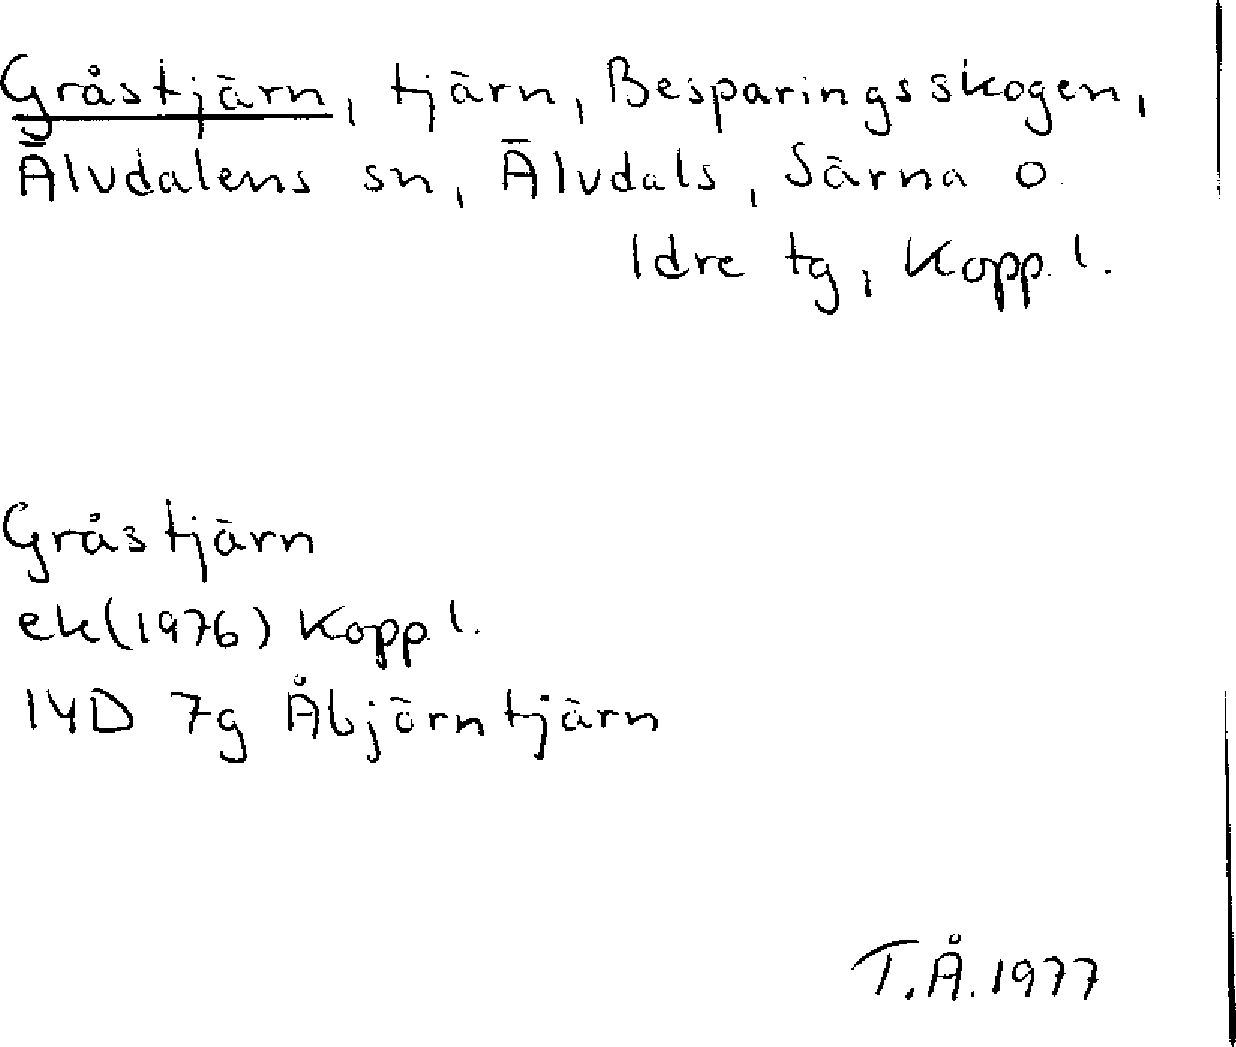 Gråstjärn, tjärn, Besparingsskogen,
Älvdalens sn, Älvdals, Särna o.
Idre tg, Kopp. l.
Gråstjärn
ek(1976) Kopp. l.
14D 7g Åbjörntjärn
T.Å. 1977